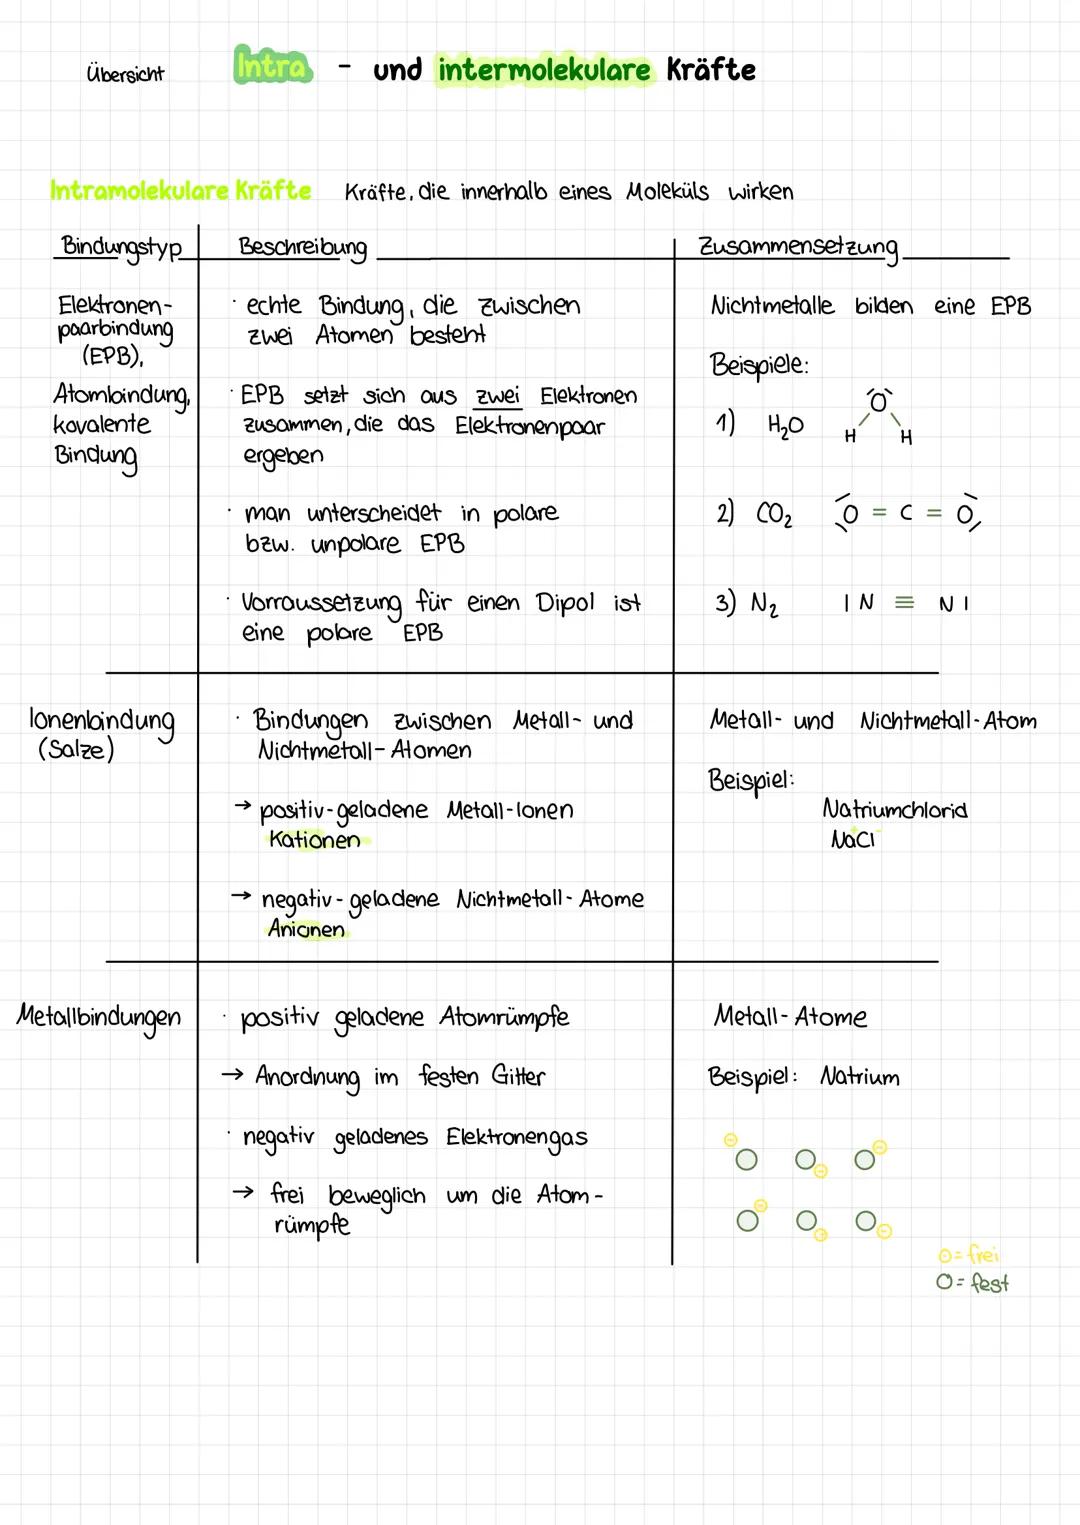 Übersicht Intra - und intermolekulare Kräfte
Intramolekulare Kräfte Kräfte, die innerhalb eines Moleküls wirken
Bindungstyp Beschreibung Zusammensetzung
Elektronen-
paarbindung
(EPB),
Atombindung,
kovalente
Bindung
· echte Bindung, die zwischen
zwei Atomen besteht
· EPB setzt sich aus zwei Elektronen
zusammen, die das Elektronenpaar
ergeben
· man unterscheidet in polare
bzw. unpolare EPB
· Vorraussetzung für einen Dipol ist
eine polare EPB
Nichtmetalle bilden eine EPB
Beispiele:
1) H₂O
O
H H
2) CO₂ O = C = O
3) N₂ I N ≡ N I
Ionenbindung
(Salze)
· Bindungen zwischen Metall- und
Nichtmetall-Atomen
→ positiv-geladene Metall-Ionen
Kationen
→ negativ-geladene Nichtmetall-Atome
Anionen
Metall- und Nichtmetall-Atom
Beispiel:
Natriumchlorid
Na⁺Cl⁻
Metallbindungen
· positiv geladene Atomrümpfe
→ Anordnung im festen Gitter
· negativ geladenes Elektronengas
→ frei beweglich um die Atom-
rümpfe
Metall-Atome
Beispiel: Natrium
⊖ = frei
O = fest